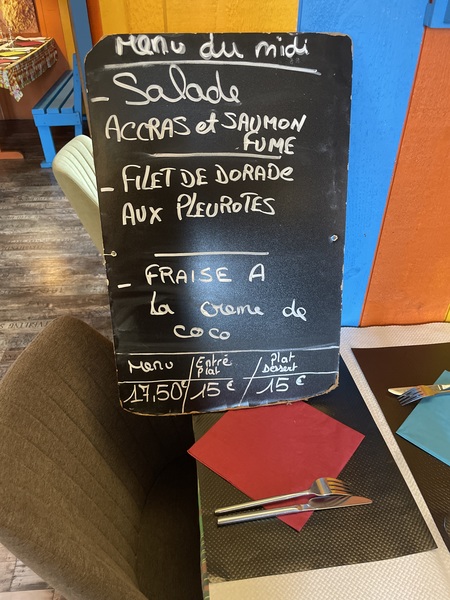 Menu du midi
- Salade
ACCRAS et SAUMON
FUME
- FILET DE DORADE
AUX PLEUROTES
- FRAISE A
La creme de
coco
Menu / Entré Plat / Plat Dessert
17,50€ / 15€ / 15€